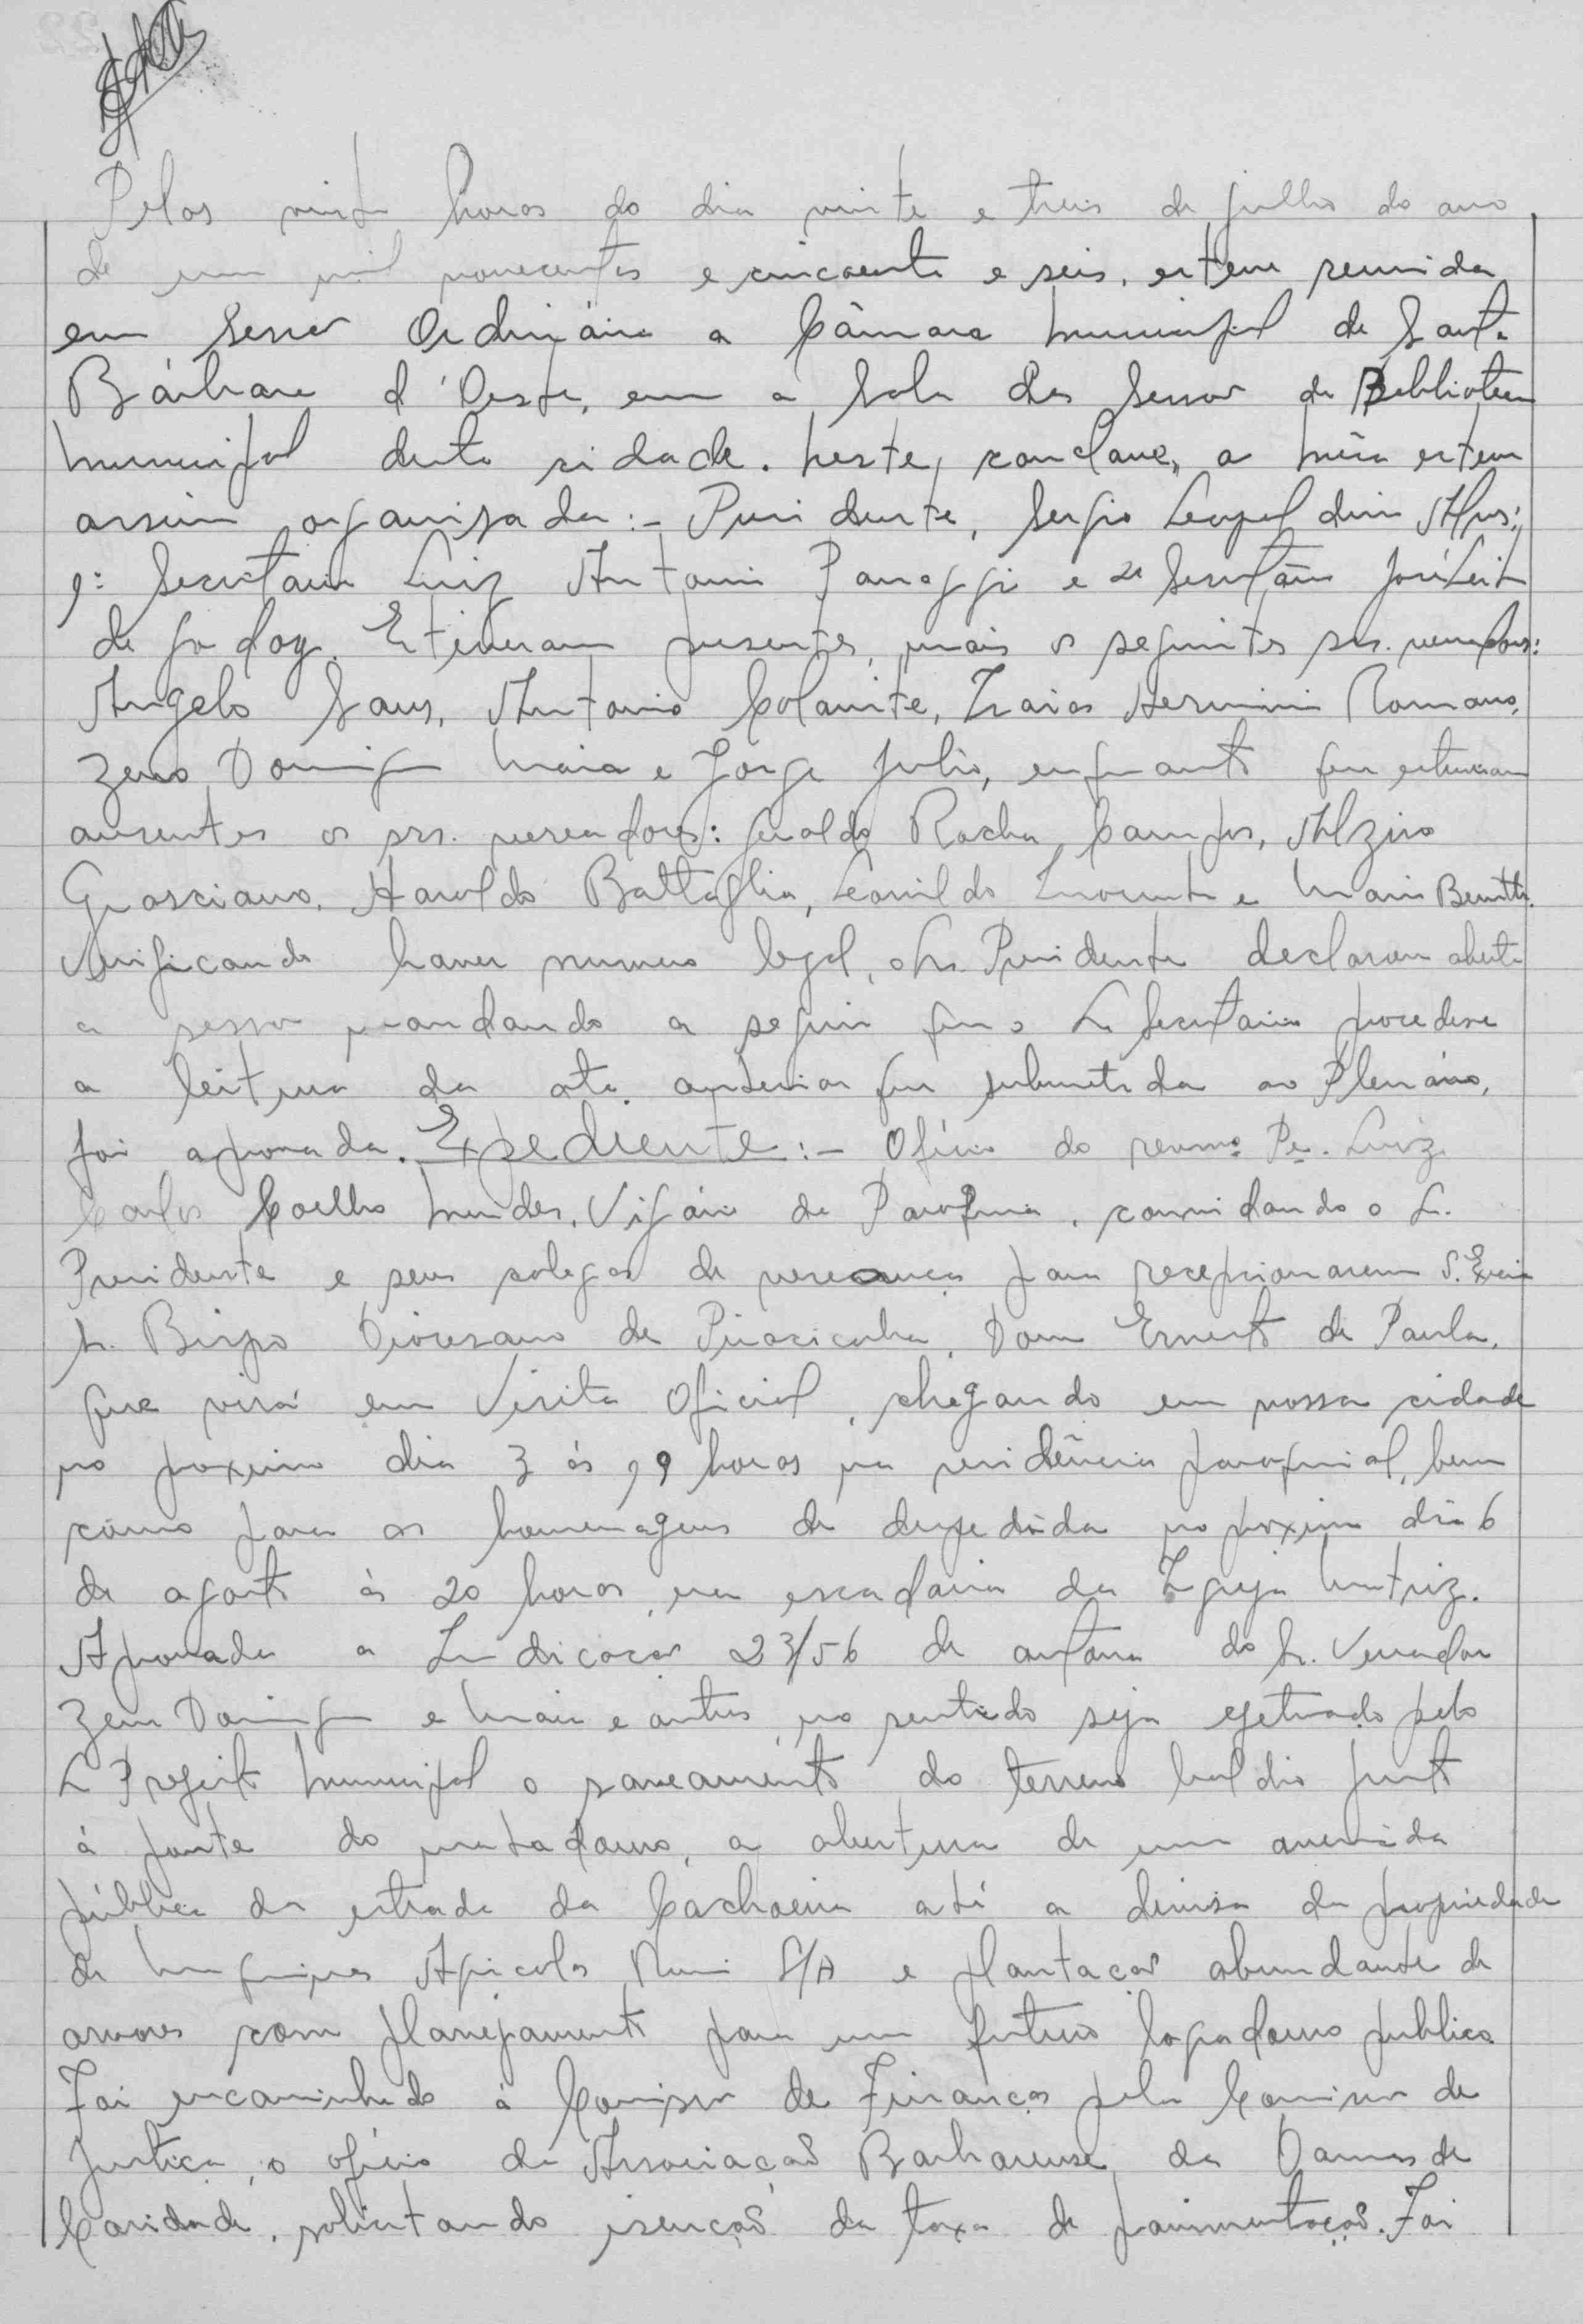 Pelas vinte horas do dia vinte e treis de julho do ano
de um mil novecentos e cincoenta e seis, esteve reunida
em Sessão Ordinária a Câmara Municipal de Santa
Bárbara d'Oeste, em a Sala das Sessões da Biblioteca
Municipal desta cidade. Neste, conclave, a Mesa esteve
assim organisada:- Presidente, Sergio Leopoldino Alves;
1º Secretario Luiz Antonio Panaggi e 2º Secretário José Leite
de Godoy. Estiveram presentes, mais os seguintes srs. vereadores:
Angelo Sans, Antonio Colanite, Izaias Herminio Romano,
Zeno Domingos Maia e Jorge Julio, enquanto que estiveram
ausentes os srs. vereadores: Geraldo Rocha Campos, Alziro
Grasciano, Haroldo Battaglia, Leonildo Inocente e Mario
Verificando haver numero legal, o Sr. Presidente declarou aberta
a sessão mandando a seguir que o Sr. Secretario procedesse
a leitura da ata anterior que submetida ao Plenário,
foi aprovada. Expediente:- Ofício do revmo Pe. Luiz
Carlos Coelho Mendes, Vigário da Paroquia, convidando o Sr.
Presidente e seus colegas de vereança para recepcionarem S. Excia
Sr. Bispo Diocesano de Piracicaba, Dom Ernesto de Paula,
que virá em Visita Oficial, chegando em nossa cidade
no proximo dia 3 ás 19 horas na residência paroquial, bem
como para as homenagens de despedida no proximo dia 6
de agosto ás 20 horas, na escadaria da Igreja Matriz.
Aprovada a Indicação 23/56 de autoria do Sr. Vereador
Zeno Domingos Maia e outros, no sentido seja efetuado pelo
Sr Prefeito Municipal o saneamento do terreno baldio junto
á ponte do matadouro, a abertura de uma avenida
pública da estrada da Cachoeira até a divisa da propriedade
de Maquinas Agricolas Nomi S/A e plantação abundante de
arvores com planejamento para um futuro logradouro publico.
Foi encaminhado á Comissão de Finanças pela Comissão de
Justiça, o ofício da Associação Barbarense das Damas de
Caridade, solicitando isenção da taxa de pavimentação. Foi